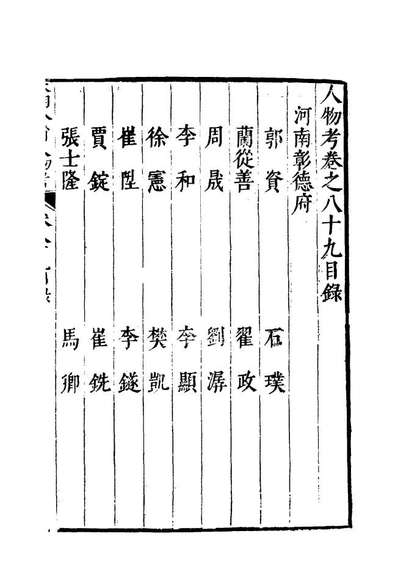 人物考卷之八十九目錄
河南彰德府
郭資 石璞
藺從善 翟政
周晟 劉潺
李和 李顯
徐憲 樊凱
崔陞 李鐩
賈錠 崔銑
張士隆 馬卿